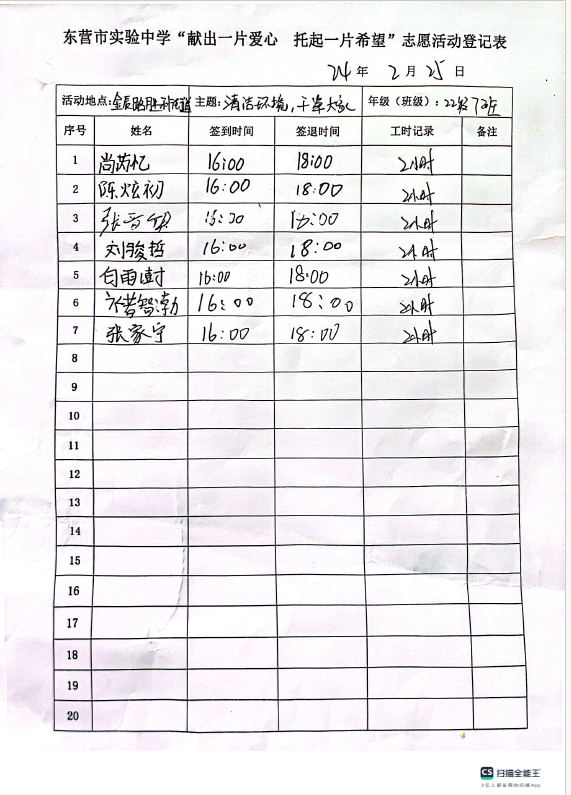 东营市实验中学“献出一片爱心 托起一片希望”志愿活动登记表
24 年 2 月 25 日
活动地点: 主题: 清洁环境, 干净大家 年级（班级）: 22级7班
序号 姓名 签到时间 签退时间 工时记录 备注
1 尚芮忆 16:00 18:00 2小时
2 陈炫初 16:00 18:00 2小时
3 张 18:00 2小时
4 刘骏哲 16:00 18:00 2小时
5 白雨 16:00 18:00 2小时
6 智渤 16:00 18:00 2小时
7 张家宁 16:00 18:00 2小时
8
9
10
11
12
13
14
15
16
17
18
19
20
CS 扫描全能王
3亿人都在用的扫描App